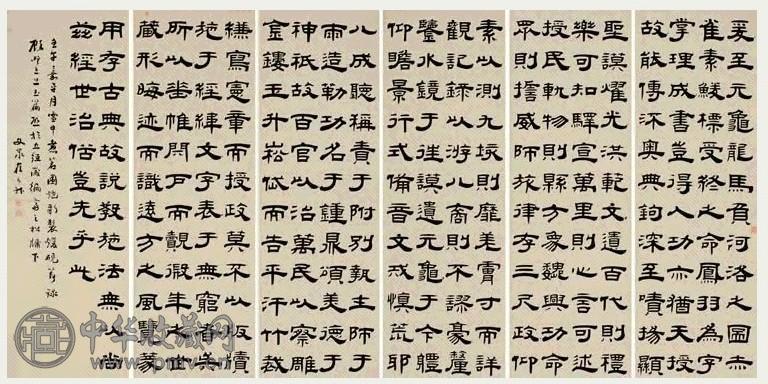 爰至元龜龍馬負河洛之圖赤
雀素鱗標受終之命鳳羽為字
掌理成書豈得人功亦猶天授
故能傳流奧典鉤深至賾揚顯
聖謨耀光洪範文遺百代則禮
樂可知驛宣萬里則心言可述
授民軌物則縣方象魏興功命
眾則誓威師旅律存三尺政仰
素以測九垓則靡差膚寸而詳
觀記錄以游八裔則不謬豪釐
鑒水鏡于往謨遺元龜于今體
仰瞻景行式備昔文戒慎荒邪
八成聽稱責于附別執士師于
兩造勒功名于鍾鼎頌美德于
神祇故百官以治萬民以察雕
金鏤玉升崧岱而告平汗竹裁
縑寫憲章而授政莫不以版牘
施于經緯文字表于無窮者矣
所以垂帷閉戶而覿遐年之世
藏形晦迹而識遠方之風覽篆
用存古典故說教施法無以尚
茲經世治俗豈先乎此
壬午嘉平月雪中煮茗圍炉新製煖硯錄
顧野王玉篇序於五經歲徧齋之松牖下
中华收藏网